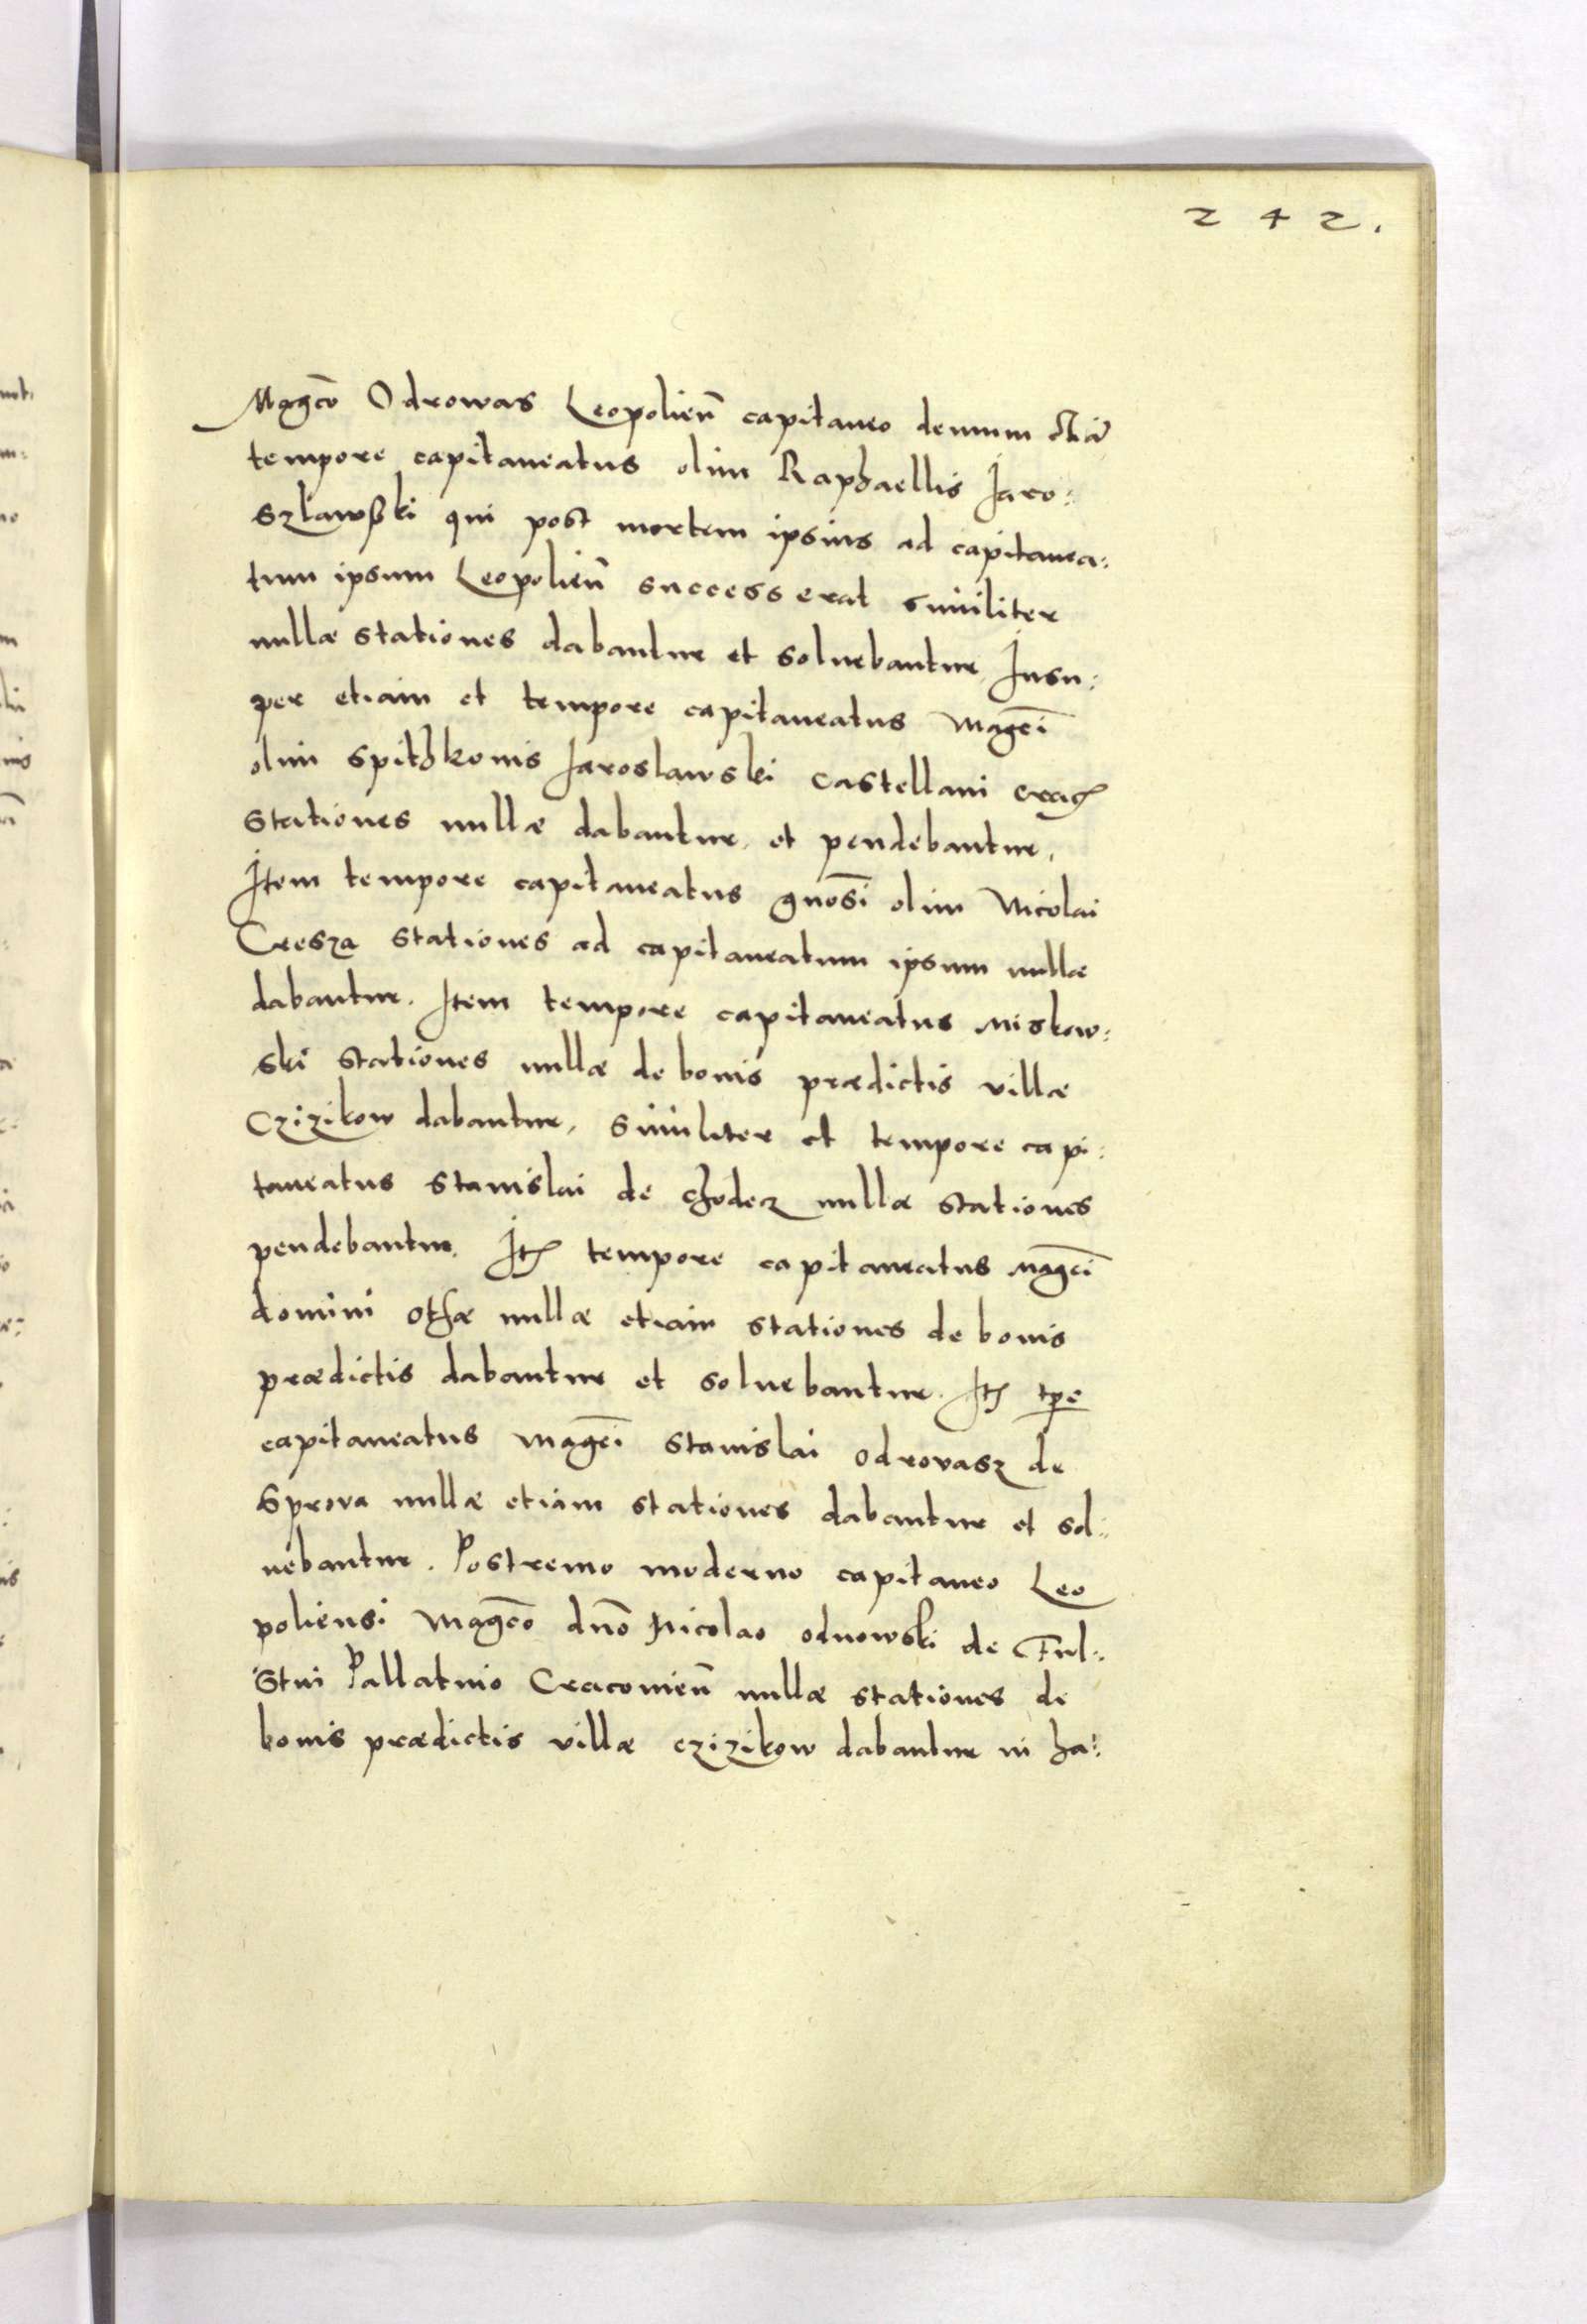 242.
Magco Odrowas Leopolien̄ capitaneo demum
tempore capitaneatus olim Raphaellis Jaro:
szlawski qui post mortem ipsius ad capitanea:
tum ipsum Leopolien̄ successerat similiter
nullæ stationes dabantur et soluebantur, Insu:
per etiam et tempore capitaneatus Magci
olim Spithkonis Jaroslawski castellani
stationes nullæ dabantur, et pendebantur,
Item tempore capitaneatus gnosi olim Nicolai
Cresza stationes ad capitaneatum ipsum nullæ
dabantur. Item tempore capitaneatus Miskow:
ski stationes nullæ de bonis prædictis villæ
Czizikow dabantur, similiter et tempore capi:
taneatus Stanislai de chodecz nullæ stationes
pendebantur. Itē tempore capitaneatus Magci
domini Othæ nullæ etiam stationes de bonis
prædictis dabantur et soluebantur. Itē tp̄e
capitaneatus Magci Stanislai Odrovasz de
Sprova nullæ etiam stationes dabantur et sol:
uebantur. Postremo moderno capitaneo Leo
poliensi Magco dno Nicolao odnowski de Ful:
stin Pallatino Cracovien̄ nullæ stationes de
bonis prædictis villæ czizikow dabantur ni ha: